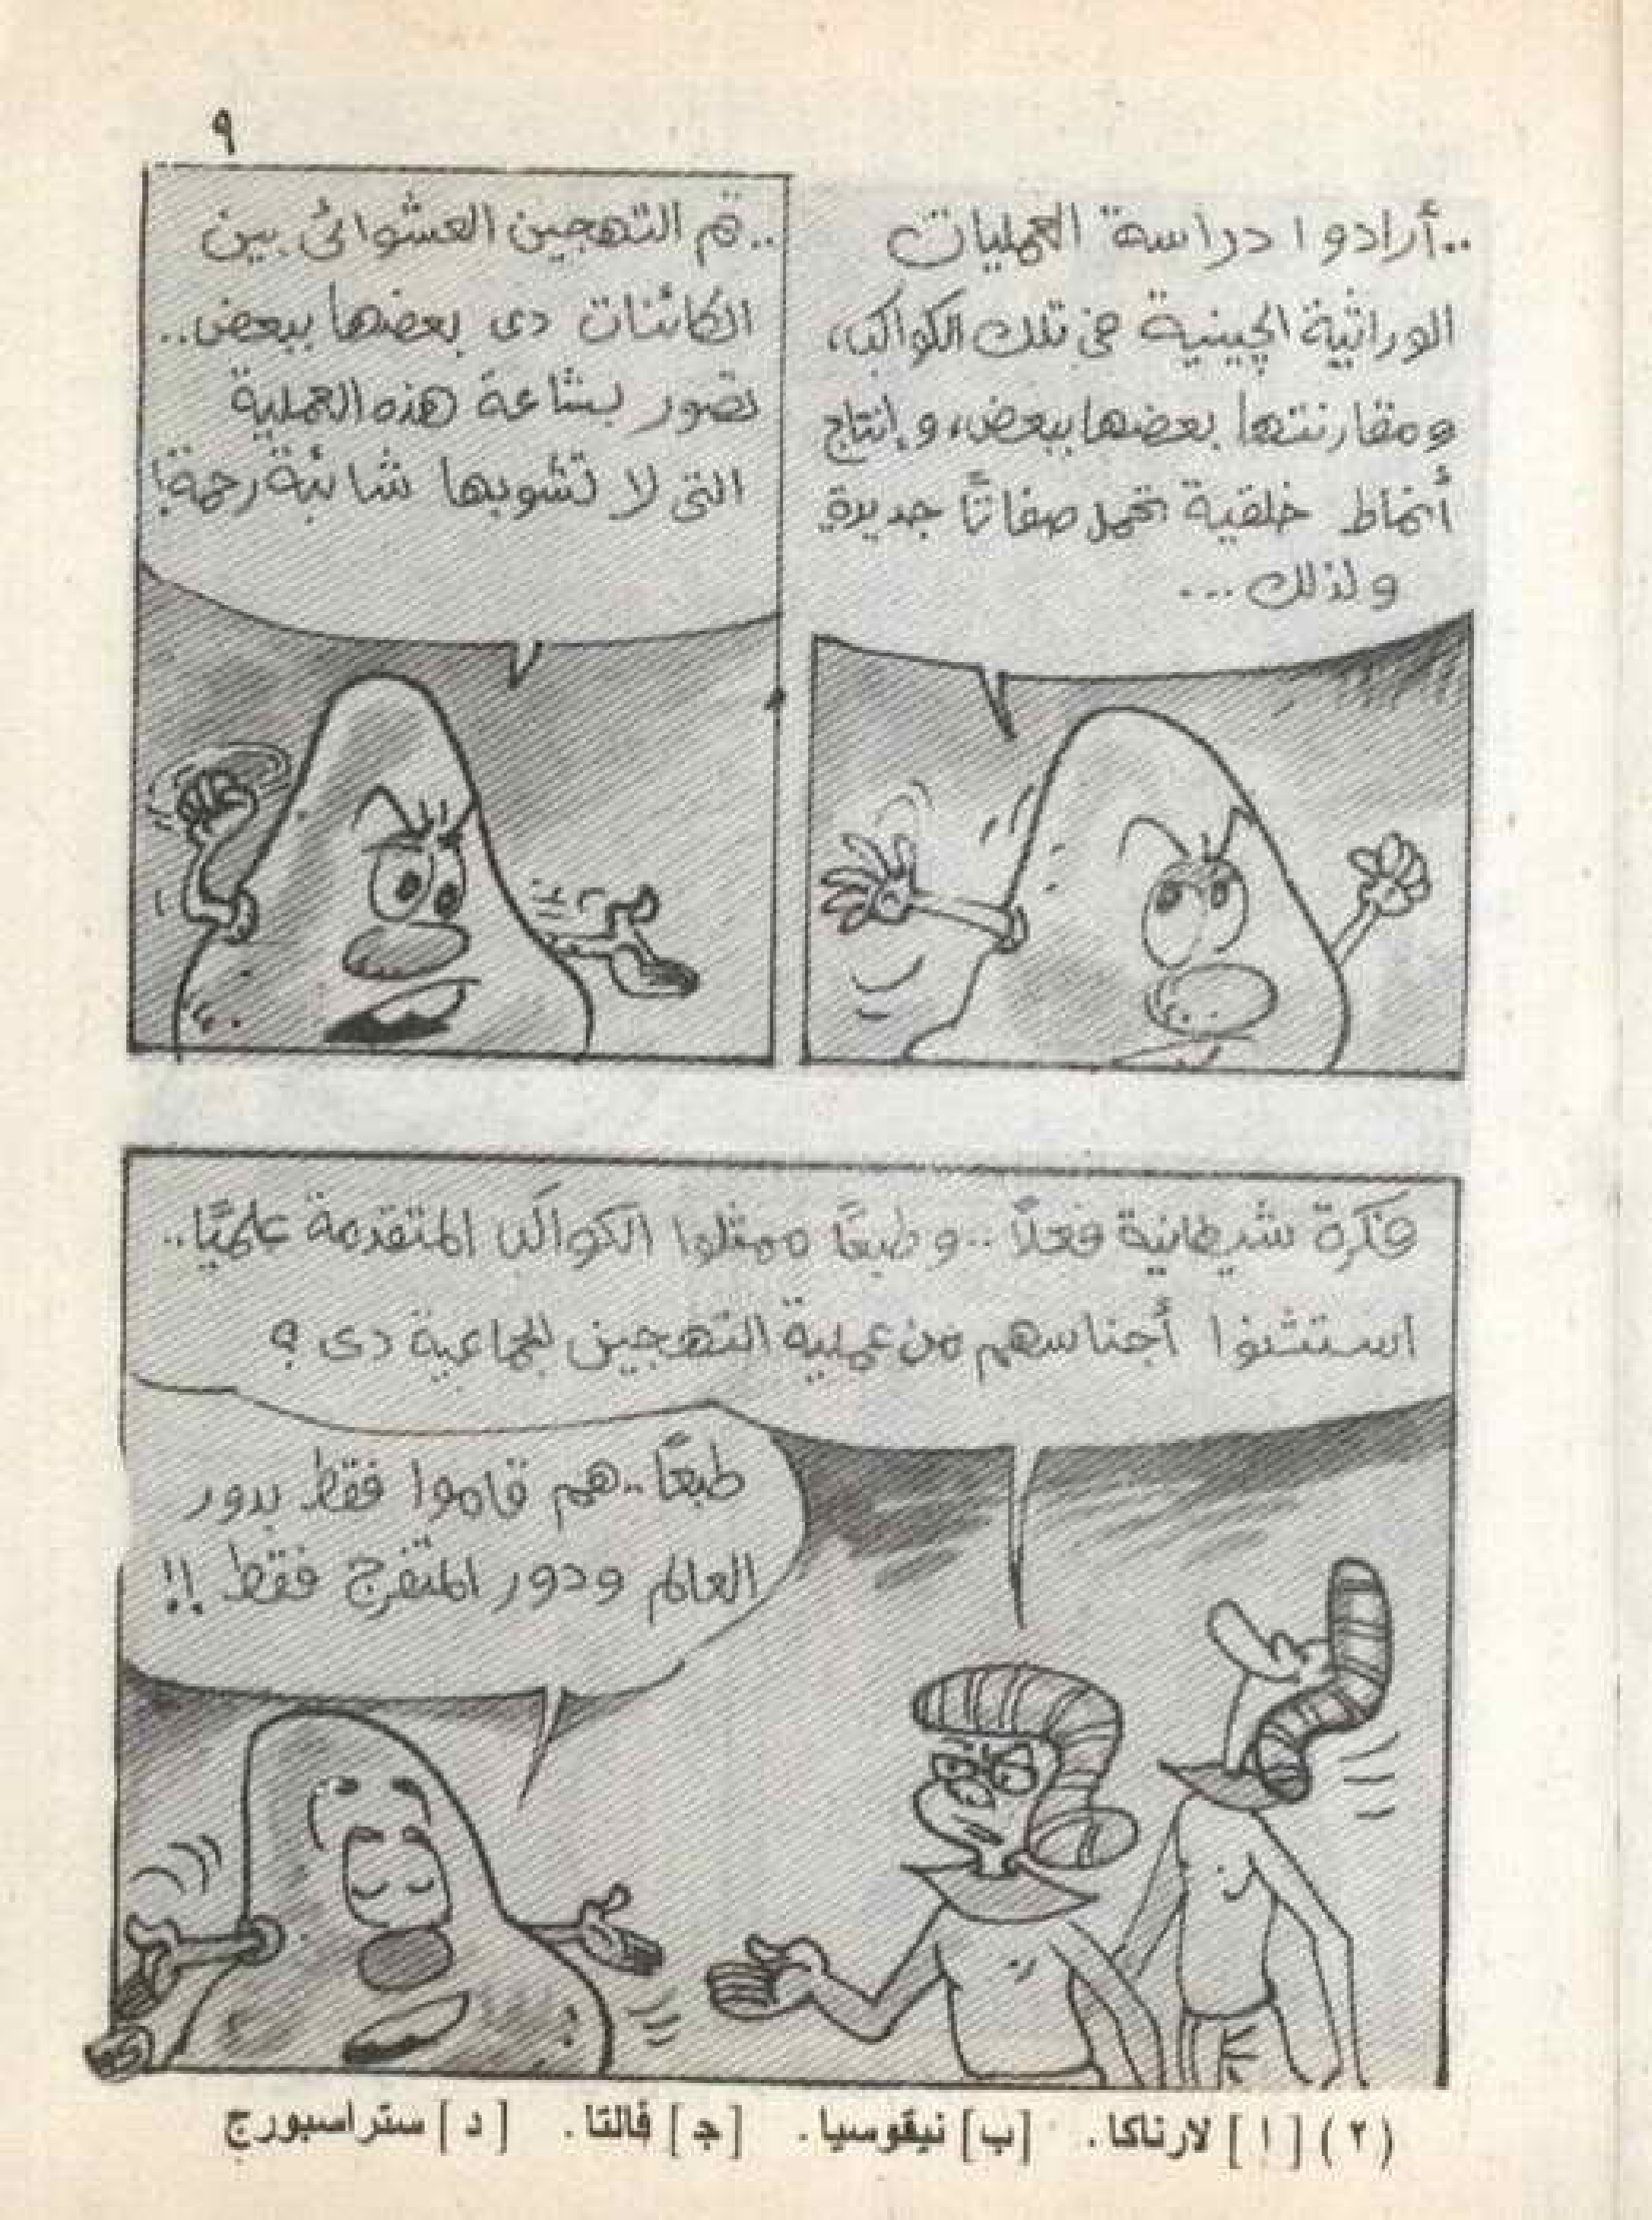 ٩
..أرادوا دراسة العمليات
الوراثية الچينية فى تلك الكواكب،
ومقارنتها بعضها ببعض، وإنتاج
أنماط خلقية تحمل صفاتًا جديدة
ولذلك...
..تم التهجين العشوائى بين
الكائنات دى بعضها ببعض..
تصور بشاعة هذه العملية
التى لا تشوبها شائبة رحمة!
فكرة شيطانية فعلاً..وطبعًا ممثلوا الكواكب المتقدمة علميًا..
استثنوا أجناسهم من عملية التهجين الجماعية دى ؟
طبعًا..هم قاموا فقط بدور
العالم ودور المتفرج فقط !!
(٢) [ ا ] لارناكا. [ب] نيقوسيا. [جـ] فالتا. [ د ] ستراسبورج